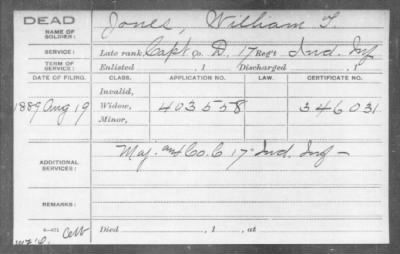 DEAD
NAME OF SOLDIER: Jones, William T.
SERVICE: Late rank, Capt Co. D, 17 Reg't Ind. Inf
TERM OF SERVICE: Enlisted , 1 Discharged , 1
DATE OF FILING. CLASS. APPLICATION NO. LAW. CERTIFICATE NO.
Invalid,
1889 Aug 19 Widow, 403558 346031
Minor,
ADDITIONAL SERVICES: Maj. and Co. C 17" Ind. Inf —
REMARKS:
Died , 1 , at